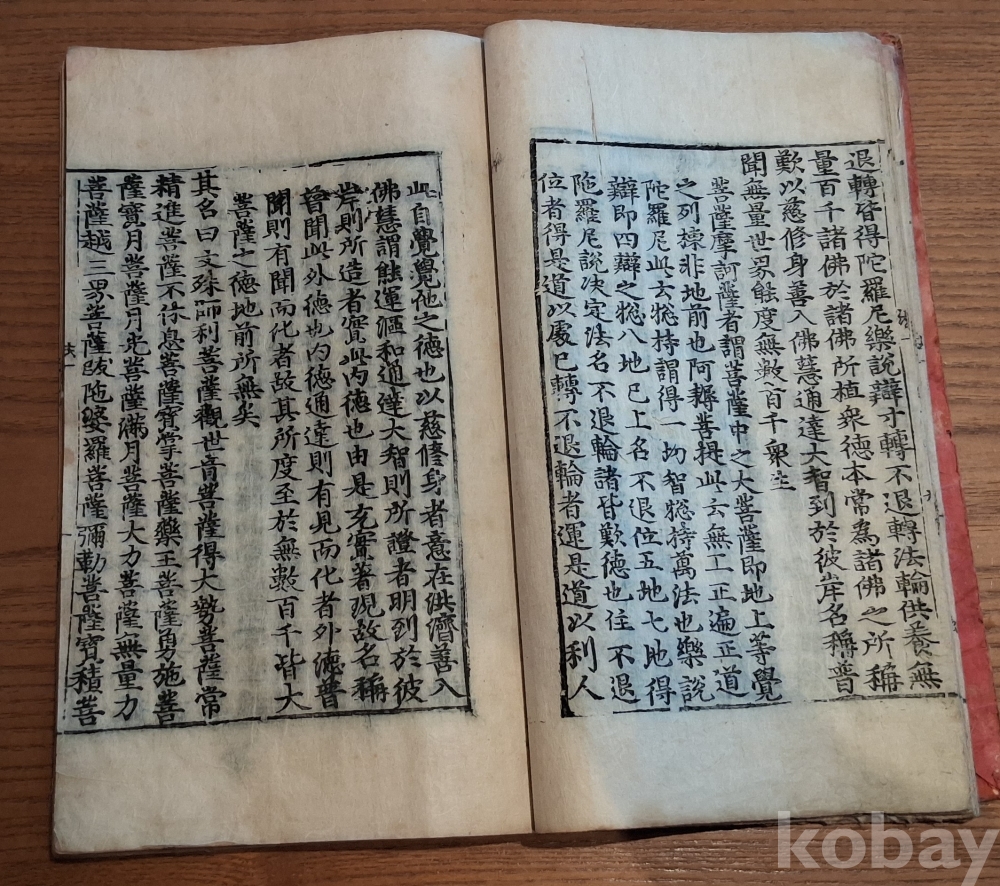 退轉皆得陀羅尼樂說辯才轉不退轉法輪供養無
量百千諸佛於諸佛所植衆德本常為諸佛之所稱
歎以慈修身善入佛慧通達大智到於彼岸名稱普
聞無量世界能度無數百千衆生
菩薩摩訶薩者謂菩薩中之大菩薩即地上等覺
之列揀非地前也阿耨菩提此云無上正遍正道
陀羅尼此云揔持謂得一切智揔持萬法也樂說
辯即四辯之揔八地已上名不退位五地七地得
陁羅尼說决定法名不退輪諸皆歎德也住不退
位者得是道以處已轉不退輪者運是道以利人
此自覺覺他之德也以慈修身者意在洪濟善入
佛慧謂能運漚和通達大智則所證者明到於彼
岸則所造者實此內德也由是充實著現故名稱
普聞此外德也內德通達則有見而化者外德普
聞則有聞而化者故其所度至於無數百千皆大
菩薩之德地前所無矣
其名曰文殊師利菩薩觀世音菩薩得大勢菩薩常
精進菩薩不休息菩薩寶掌菩薩藥王菩薩勇施菩
薩寶月菩薩月光菩薩滿月菩薩大力菩薩無量力
菩薩越三界菩薩跋陁婆羅菩薩彌勒菩薩寶積菩
kobay